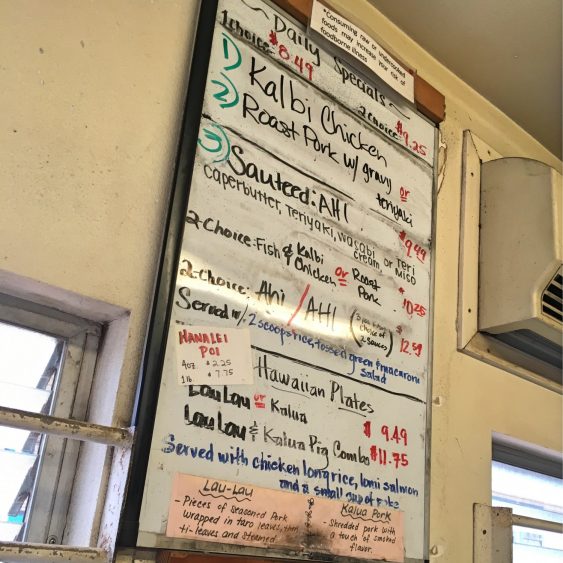 *Consuming raw or undercooked
foods may increase your risk of
foodborne illness
~ Daily Specials ~
1 choice: $8.49
2 choice: $9.25
1) Kalbi Chicken
2) Roast Pork w/ gravy or teriyaki
3) Sauteed: AHI $9.99
caperbutter, Teriyaki, wasabi cream or Teri Miso
2-choice: Fish & Kalbi Chicken or Roast Pork $10.25
2-choice: Ahi / AHI choice of 2 sauces) $12.59
Served w/ 2 scoops rice, tossed green & macaroni
Salad
HANALEI
POI
4oz. $2.25
1lb. $7.75
Hawaiian Plates
Lau Lau or Kalua $9.49
Lau Lau & Kalua Pig Combo $11.75
Served with chicken long rice, lomi salmon
and a small
LAU-LAU
- Pieces of seasoned Pork
wrapped in taro leaves, then
ti-leaves and steamed.
KALUA PORK
- Shredded pork with
a touch of smoked
flavor.